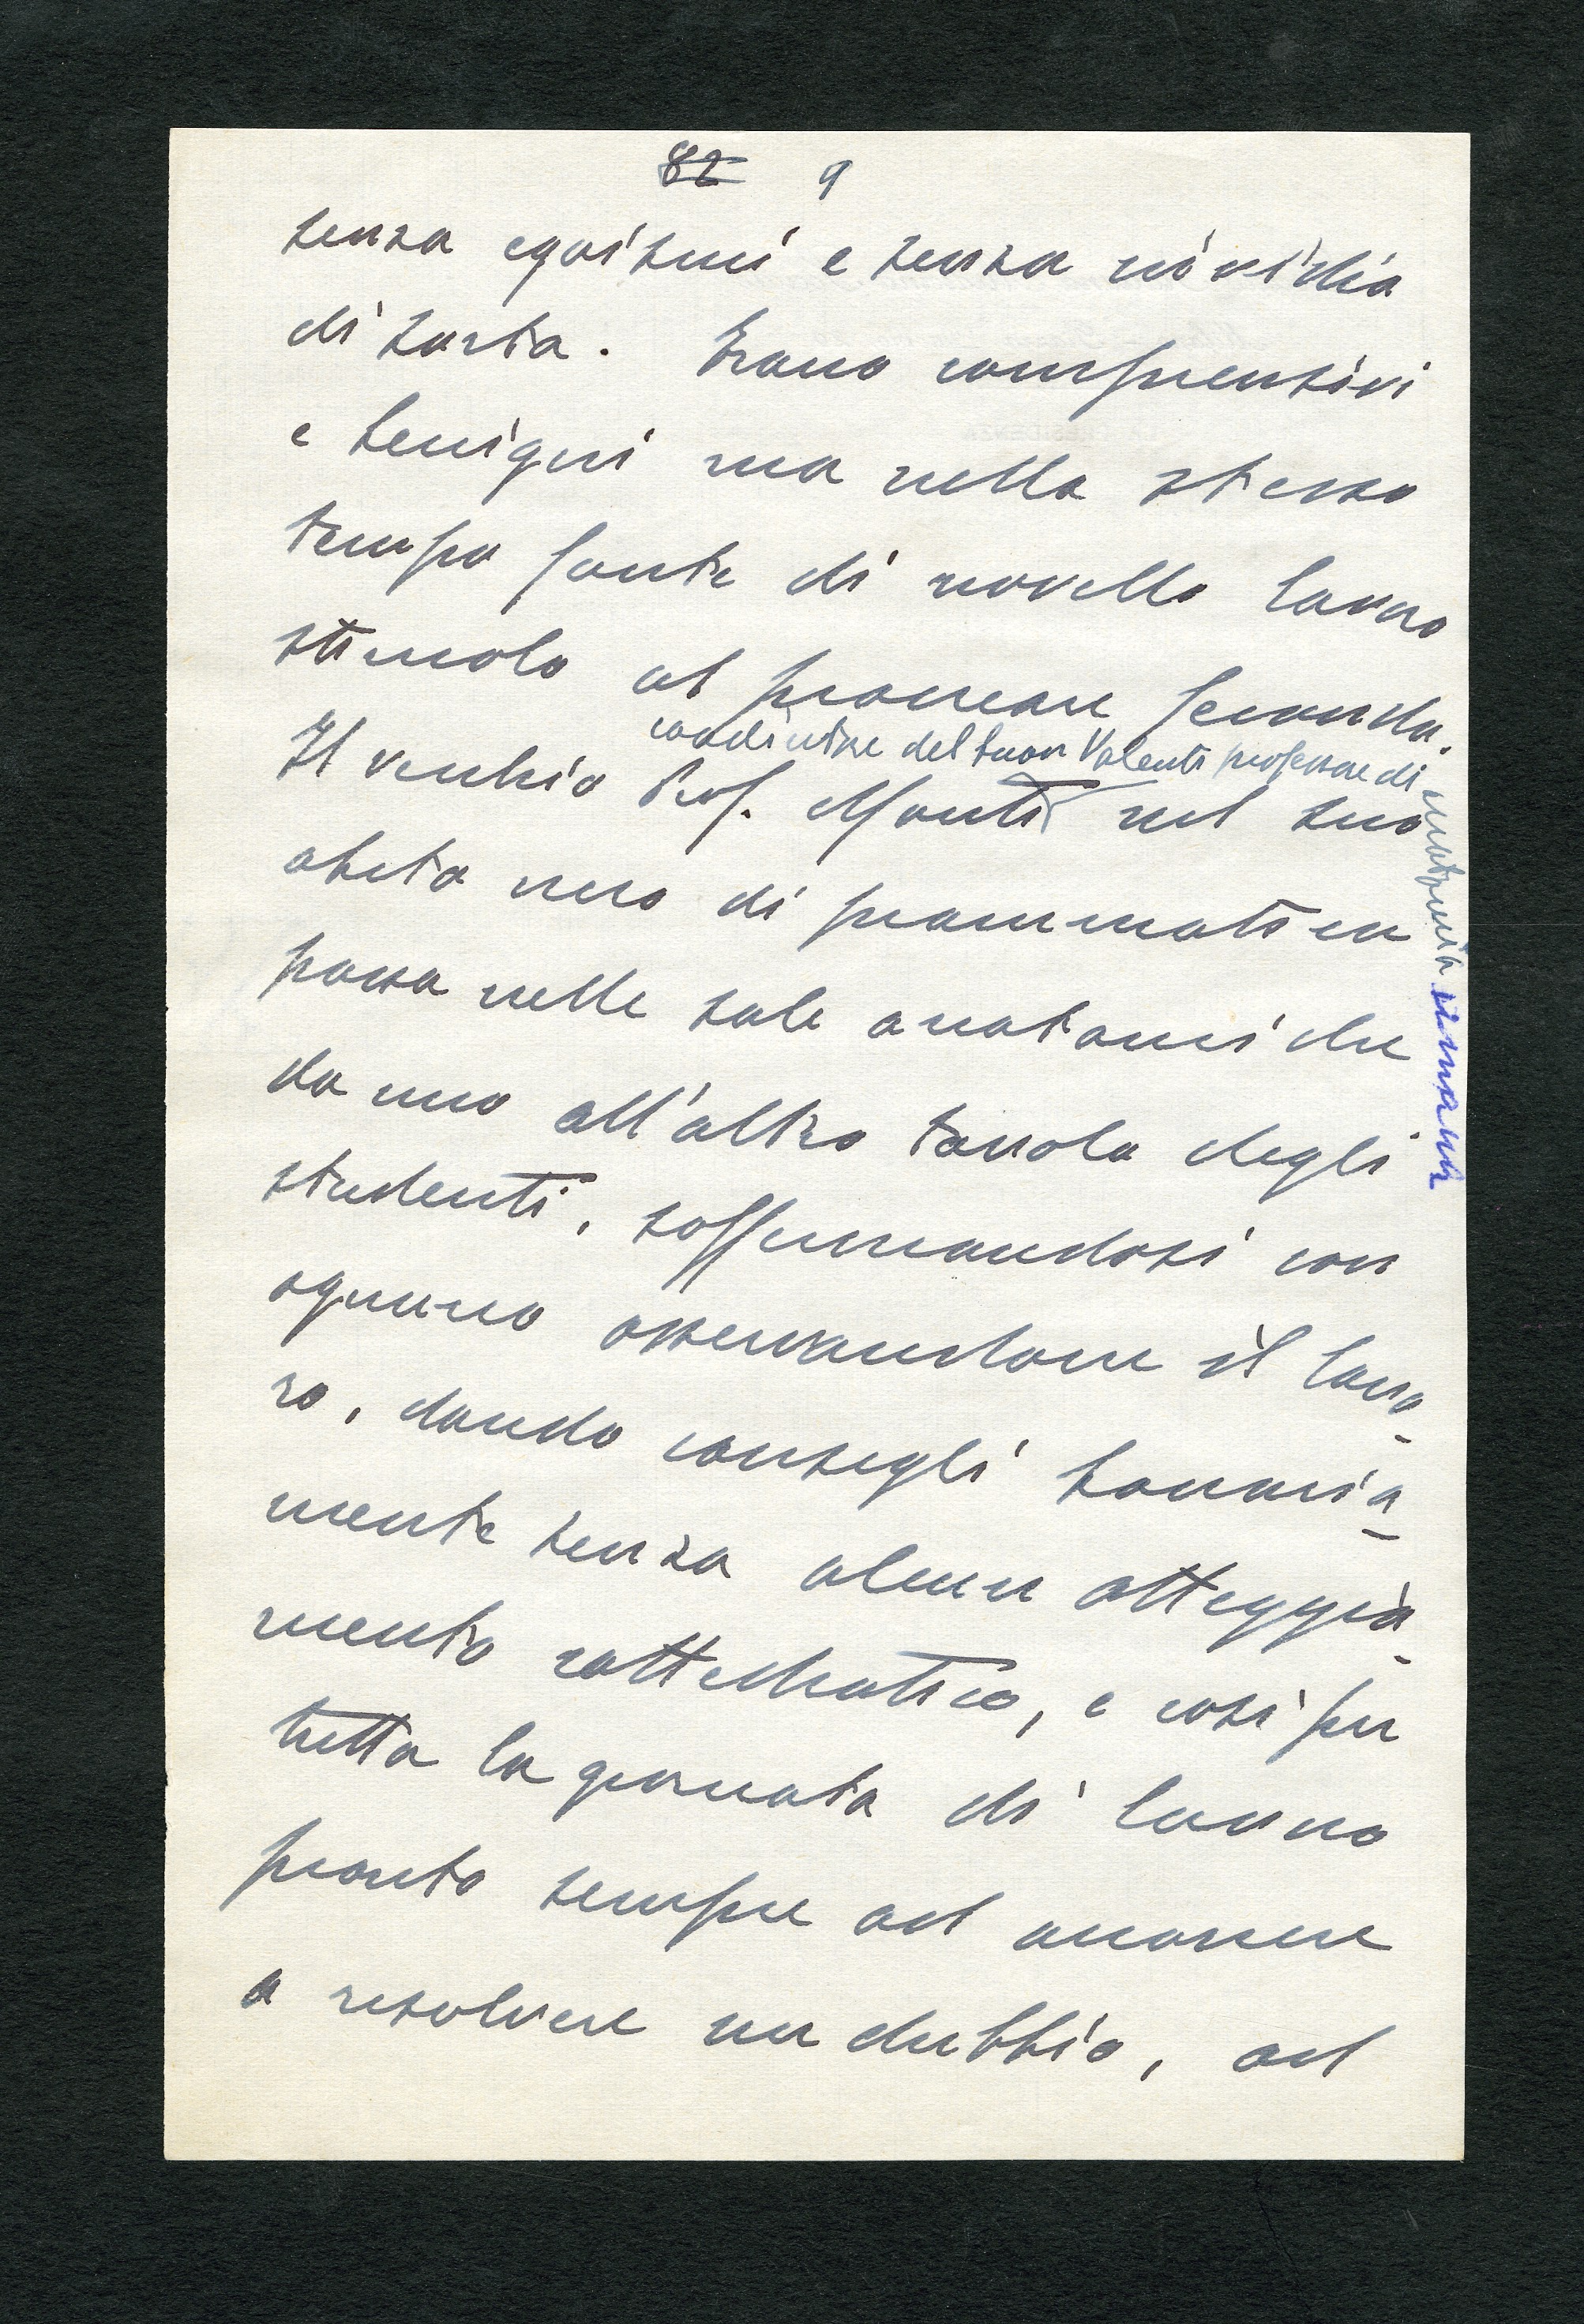 82 9
senza egoismi e senza invidia
di sorta. Erano comprensivi
e benigni ma nello stesso
tempo fonte di novello lavoro
stimolo al procreare fecondo.
coadiutore del buon Valenti professore di anatomia umana
Il vecchio Prof. Monti nel suo
abito nero di prammatica
passa nelle sale anatomiche
da uno all'altro tavolo degli
studenti, soffermandosi con
ognuno osservandone il lavo-
ro, dando consigli bonaria-
mente senza alcun atteggia-
mento cattedratico, e così per
tutta la giornata di lavoro
pronto sempre ad accorrere
a risolvere un dubbio, ad